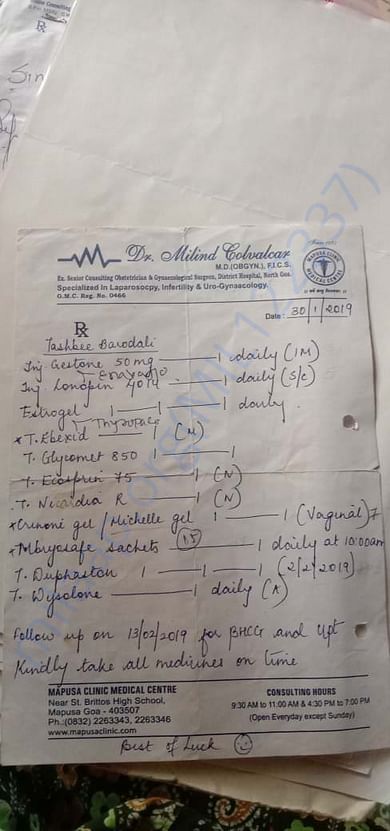 Rx
Dr. Milind Colvalcar
M.D.(OBGYN.), F.I.C.S.
Ex. Senior Consulting Obstetrician & Gynaecological Surgeon, District Hospital, North Goa.
Specialized in Laparosocpy, Infertility & Uro-Gynaacology.
G.M.C. Reg. No. 0466
MAPUSA CLINIC MEDICAL CENTRE
Date : 30/1/2019
Rx
Tashbee Barodali
Inj Gestone 50mg — 1 daily (IM)
Inj Lonopin 40 — 1 daily (S/C)
Estrogel 1 — 1 — 1 daily.
* T. — 1 (M)
T. Glycomet 850 1 — 1
T. Ecosprin 75 — 1 (N)
T. Nicardia R — 1 (N)
*Crinone gel / Michelle gel 1 — 1 (Vaginal)
*Mbryosafe sachets (15) — 1 daily at 10:00am
T. Duphaston 1 — 1 — 1 (2/2/2019)
T. Wysolone — 1 daily (A)
Follow up on 13/02/2019 for BHCG and Upt
Kindly take all medicines on time
MAPUSA CLINIC MEDICAL CENTRE
Near St. Brittos High School,
Mapusa Goa - 403507
Ph.:(0832) 2263343, 2263346
www.mapusaclinic.com
CONSULTING HOURS
9:30 AM to 11:00 AM & 4:30 PM to 7:00 PM
(Open Everyday except Sunday)
Best of Luck